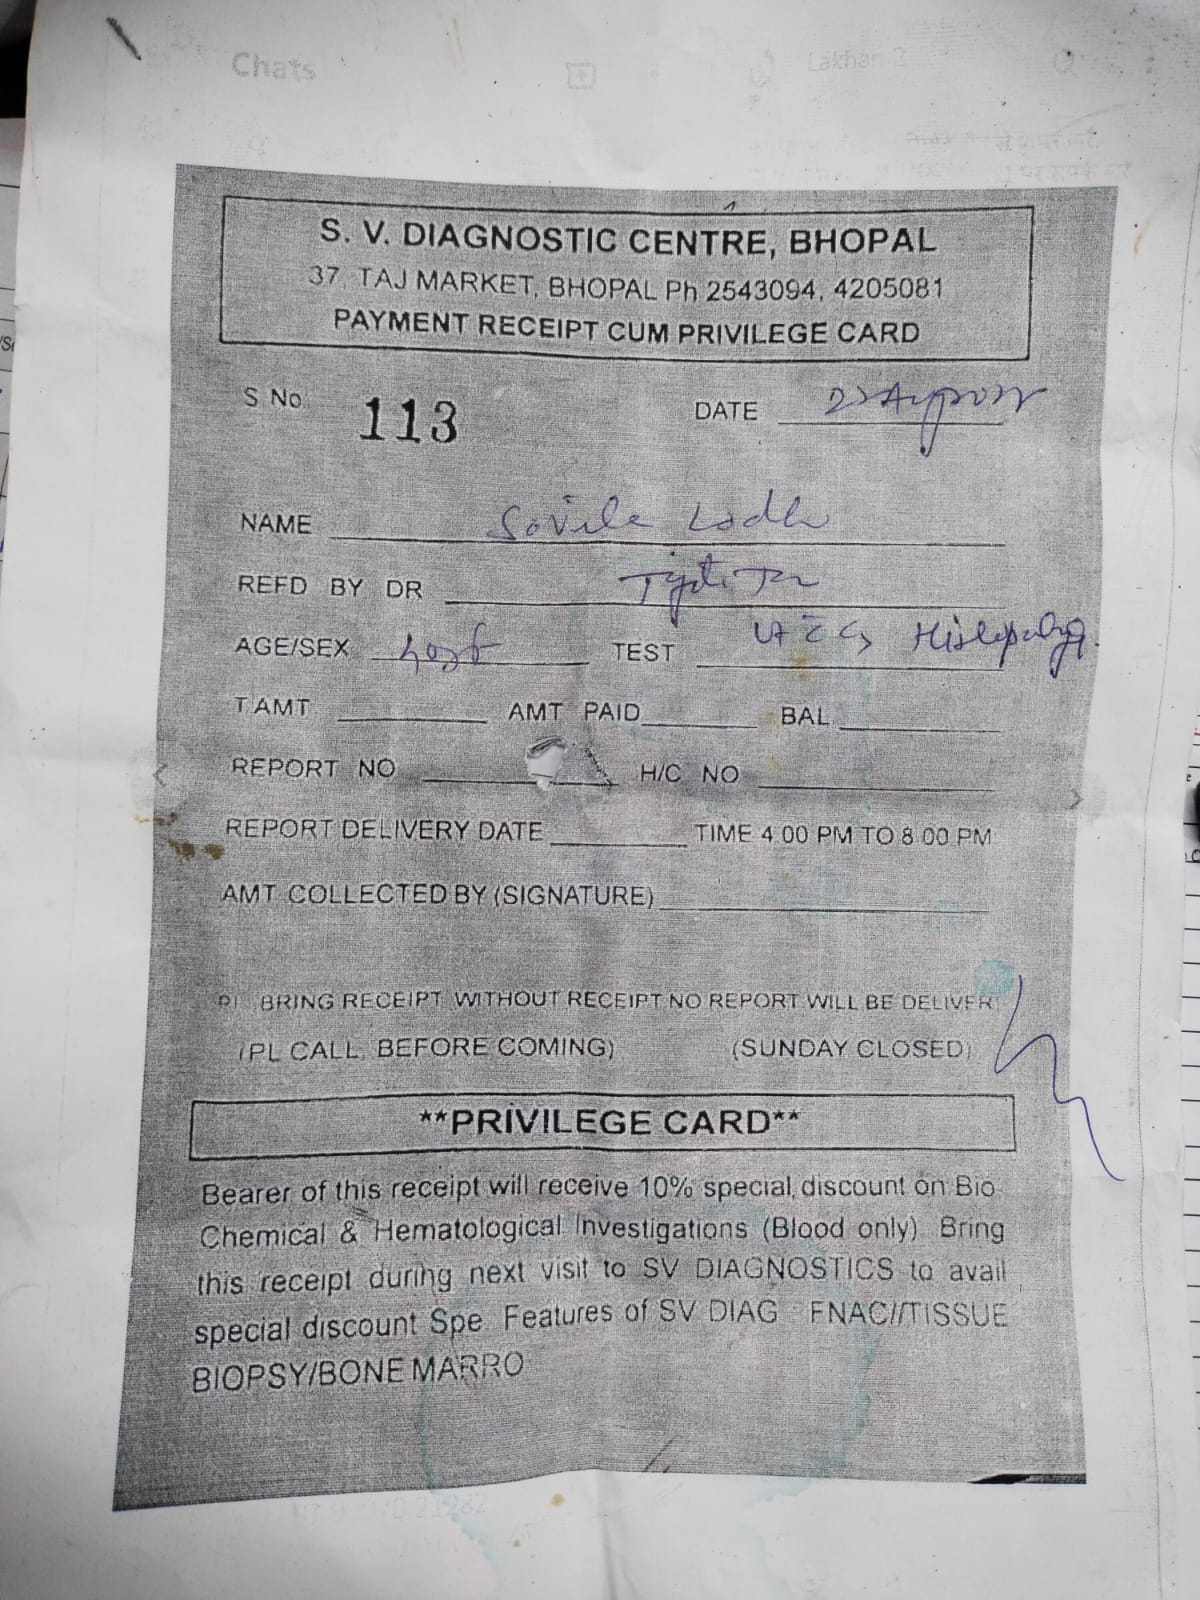 Chats
Lakhan 2
S. V. DIAGNOSTIC CENTRE, BHOPAL
37, TAJ MARKET, BHOPAL Ph 2543094, 4205081
PAYMENT RECEIPT CUM PRIVILEGE CARD
S No. 113 DATE
NAME
REFD BY DR
AGE/SEX TEST
T.AMT AMT PAID BAL
REPORT NO H/C NO
REPORT DELIVERY DATE TIME 4.00 PM TO 8.00 PM
AMT COLLECTED BY (SIGNATURE)
BRING RECEIPT, WITHOUT RECEIPT NO REPORT WILL BE DELIVER
(PL CALL, BEFORE COMING) (SUNDAY CLOSED)
**PRIVILEGE CARD**
Bearer of this receipt will receive 10% special discount on Bio
Chemical & Hematological Investigations (Blood only). Bring
this receipt during next visit to SV DIAGNOSTICS to avail
special discount Spe. Features of SV DIAG FNAC//TISSUE
BIOPSY/BONE MARRO